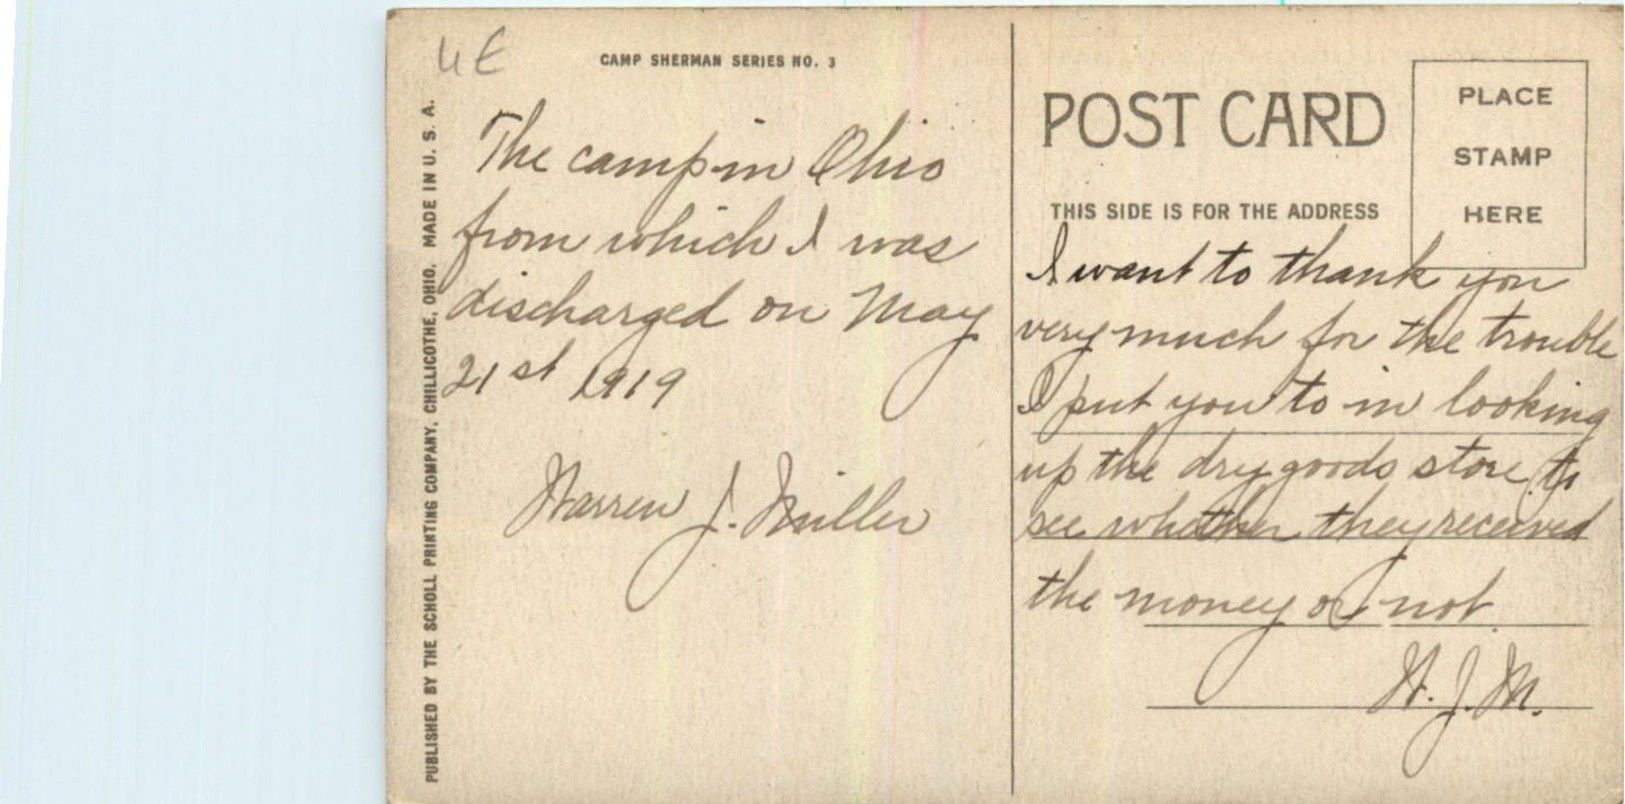 UE
CAMP SHERMAN SERIES NO. 3
PUBLISHED BY THE SCHOLL PRINTING COMPANY, CHILLICOTHE, OHIO. MADE IN U. S. A.
The camp in Ohio
from which I was
discharged on May
21st 1919
Warren J. Miller
POST CARD
THIS SIDE IS FOR THE ADDRESS
PLACE
STAMP
HERE
I want to thank you
very much for the trouble
I put you to in looking
up the dry goods store to
see whether they received
the money or not.
W. J. M.